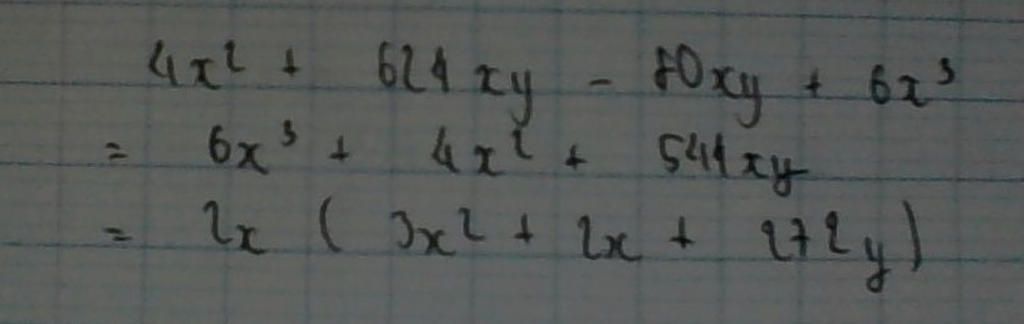 4x² + 624xy - 80xy + 6x³
= 6x³ + 4x² + 544xy
= 2x ( 3x² + 2x + 272y)